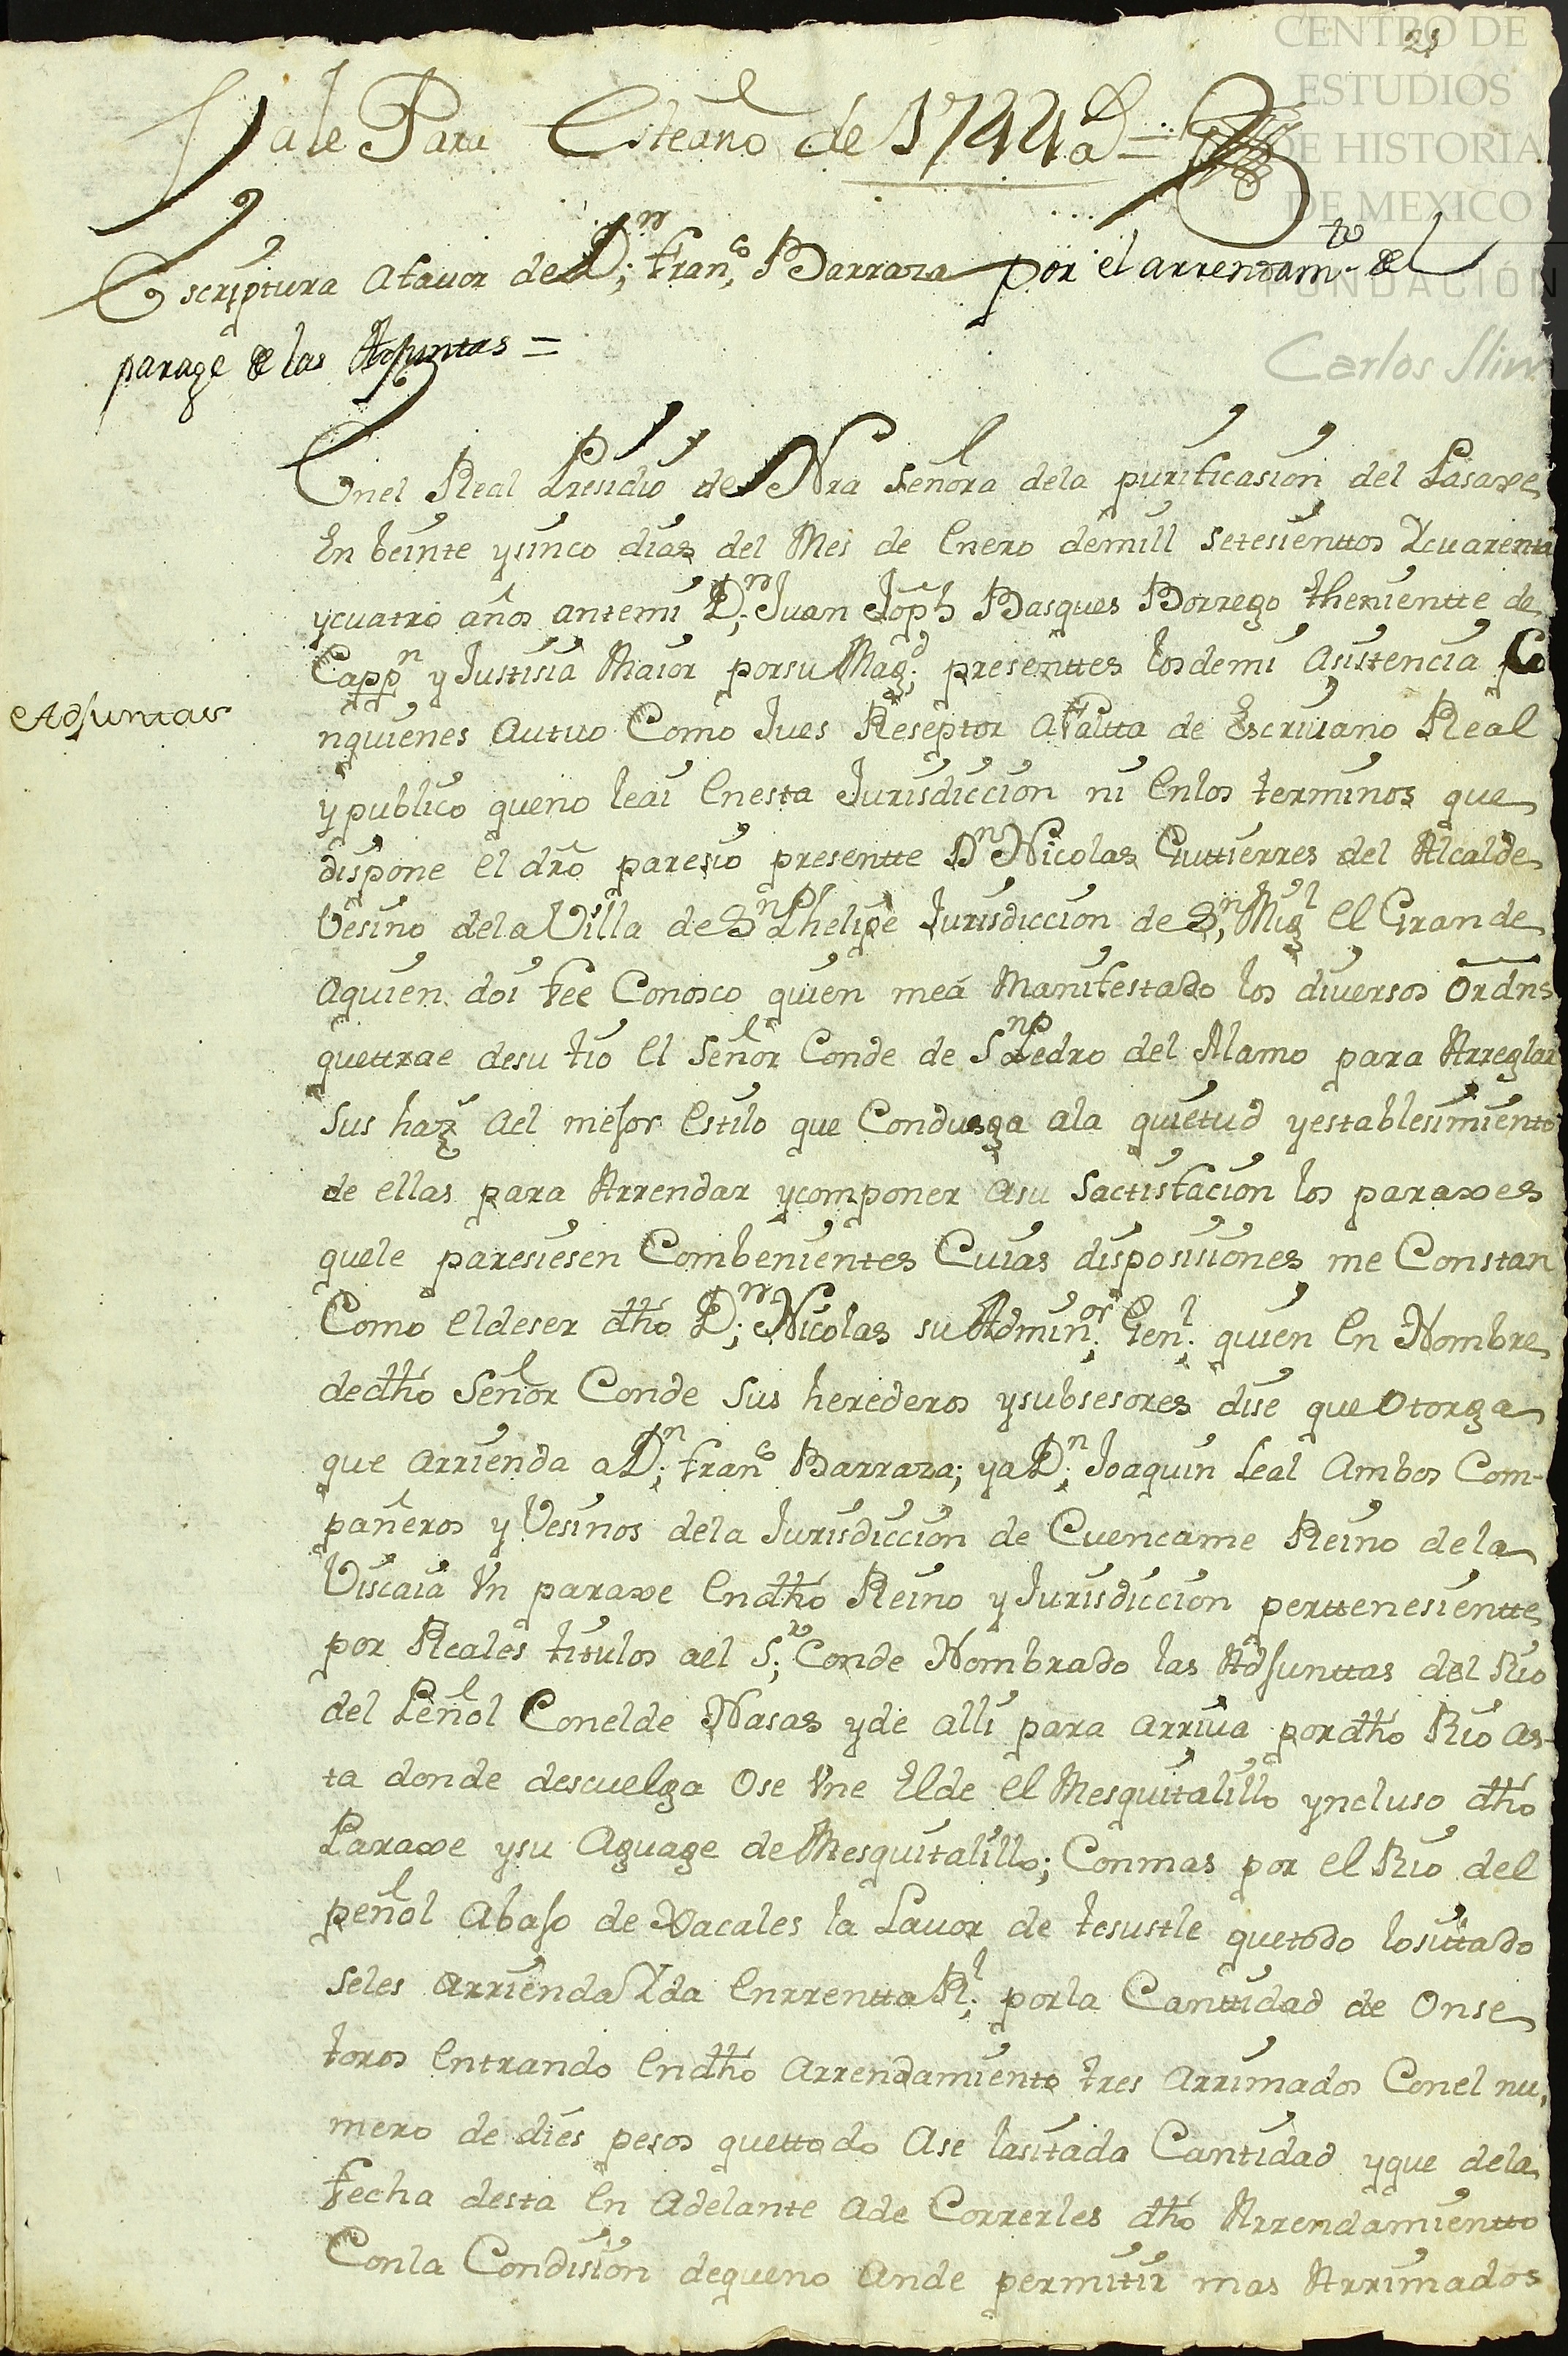 CENTRO DE
ESTUDIOS
DE HISTORIA
DE MEXICO
FUNDACIÓN
Carlos Slim
21
Vale Para Esteaño de 1744 a =
Escriptura afauor de D.n Fran.co Barraza por el arrendam.to del
parage de las Adjuntas =
Enel Real Presidio de Nra Señora dela purificasion del Pasaxe
En beinte ysinco dias del Mes de Enero demill setesienttos Ycuarenta
ycuatro años antemi D.n Juan Joph Basques Borrego thenientte de
Capp.n y Justisia Maior porsu Mag.d presenttes losdemi asistencia Co
Adjuntas
nquienes autuo Como Jues Reseptor afaltta de Escriuano Real
y publico queno leai Enesta Jurisdiccion ni Enlos terminos que
dispone el dro paresio presentte Dn Nicolas Guttierres del Alcalde
Vesino dela Villa de Sn Phelipe Jurisdiccion de S.n Migl el Grande
aquien doi fee Conosco quien meá Manifestado los diversos Ordns
quettrae desu tio el Señor Conde de Sn Pedro del Alamo para Arreglar
Sus haz ael mejor Estilo que Condusga ala quietud yestablesimiento
de ellas para Arrendar ycomponer asu Sactisfacion los paraxes
quele paresiesen Combenientes Cuias disposisiones me Constan
Como eldeser dho D.n Nicolas su Admin.or Gen.l quien en Nombre
dedho Señor Conde Sus herederos ysubsesores dise que Otorga
que arrienda a D.n Fran.co Barraza; ya D.n Joaquin Leal ambos Com-
pañeros y Vesinos dela Jurisdiccion de Cuencame Reino dela
Viscaia Vn paraxe Endho Reino y Jurisdiccion perttenesientte
por Reales titulos ael S.r Conde Nombrado las Adjunttas del Rio
del Peñol Conelde Nasas yde alli para arriua pordho Rio as-
ta donde descuelga Ose Vne Elde el Mesquitalillo yncluso dho
Paraxe ysu Aguage de Mesquitalillo; Conmas por el Rio del
peñol abajo de Xacales la Lauor de tesustle quetodo losittado
seles arrienda Yda Enrrentta R.l porla Canttidad de Onse
toros Entrando Endho arrendamiento tres arrimados Conel nu,
mero de dies pesos quettodo ase lasitada Cantidad yque dela
fecha desta En adelante ade Correrles dho Arrendamientto
Conla Condision dequeno ande permitir mas Arrimados